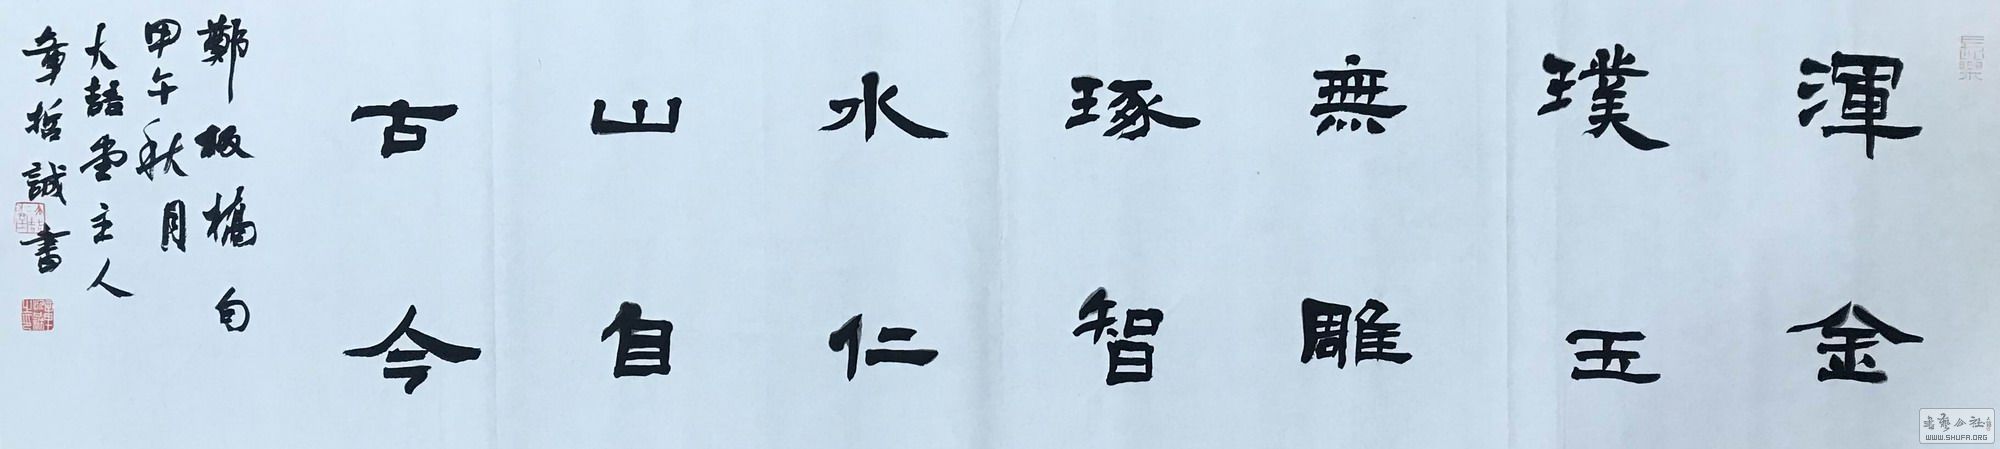 渾金
璞玉
無雕
琢智
水仁
山自
古今
鄭板橋句
甲午秋月
大喆堂主人
章哲誠書
長樂
書藝公社
WWW.SHUFA.ORG